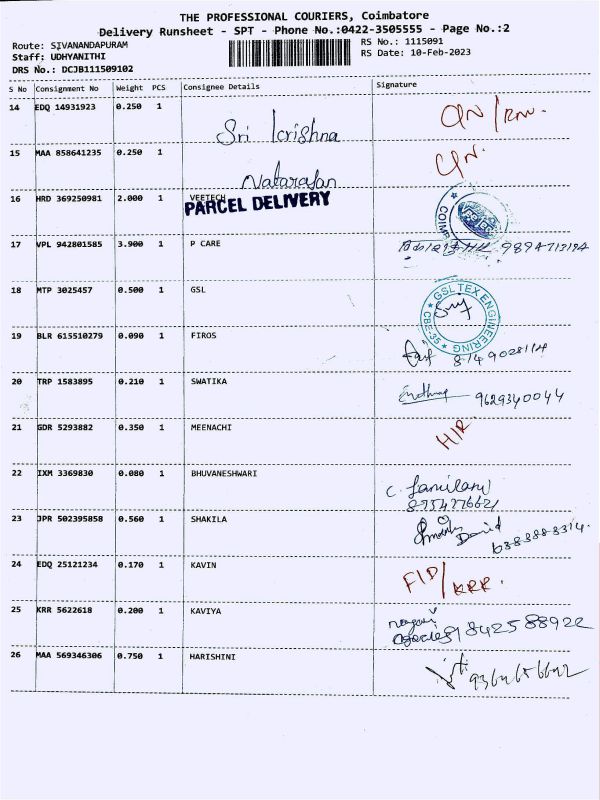 THE PROFESSIONAL COURIERS, Coimbatore
Delivery Runsheet - SPT - Phone No.:0422-3505555 - Page No.:2
Route: SIVANANDAPURAM
Staff: UDHYANITHI
DRS No.: DCJB111509102
RS No.: 1115091
RS Date: 10-Feb-2023
S No Consignment No Weight PCS Consignee Details Signature
14 EDQ 14931923 0.250 1 Sri Krishna
15 MAA 858641235 0.250 1 Natarajan
16 HRD 369250981 2.000 1 VEETECH
PARCEL DELIVERY
17 VPL 942801585 3.900 1 P CARE 9894713194
18 MTP 3025457 0.500 1 GSL
GSL TEX ENGINEERING
CBE-35
19 BLR 615510279 0.090 1 FIROS
20 TRP 1583895 0.210 1 SWATIKA 9629340044
21 GDR 5293882 0.350 1 MEENACHI
22 IXM 3369830 0.080 1 BHUVANESHWARI
23 JPR 502395858 0.560 1 SHAKILA David
24 EDQ 25121234 0.170 1 KAVIN FID/KRR.
25 KRR 5622618 0.200 1 KAVIYA 9842588922
26 MAA 569346306 0.750 1 HARISHINI